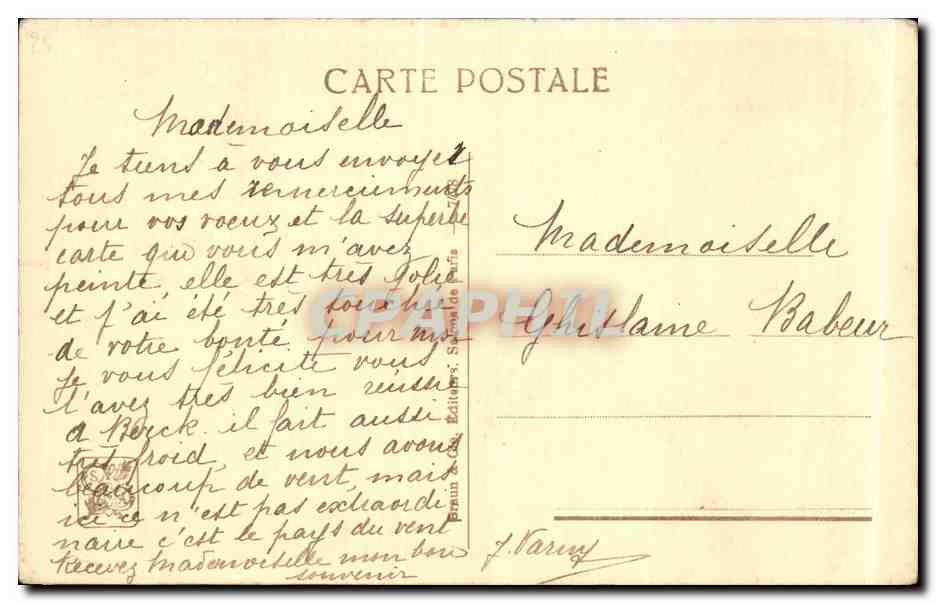 CARTE POSTALE
Mademoiselle
Je tiens à vous envoyer
tous mes remerciements
pour vos voeux et la superbe
carte que vous m'avez
peinte, elle est très jolie
et j'ai été très touché
de votre bonté pour moi
Je vous félicite vous
l'avez très bien réussie
a Berck il fait aussi
très froid, et nous avons
beaucoup de vent, mais
ici ce n'est pas extraordi
naire c'est le pays du vent
Recevez Mademoiselle mon bon
souvenir
Braun & Cie, Éditeurs. Salons de Paris
Mademoiselle
Ghislaine Babeur
CPAPHIL